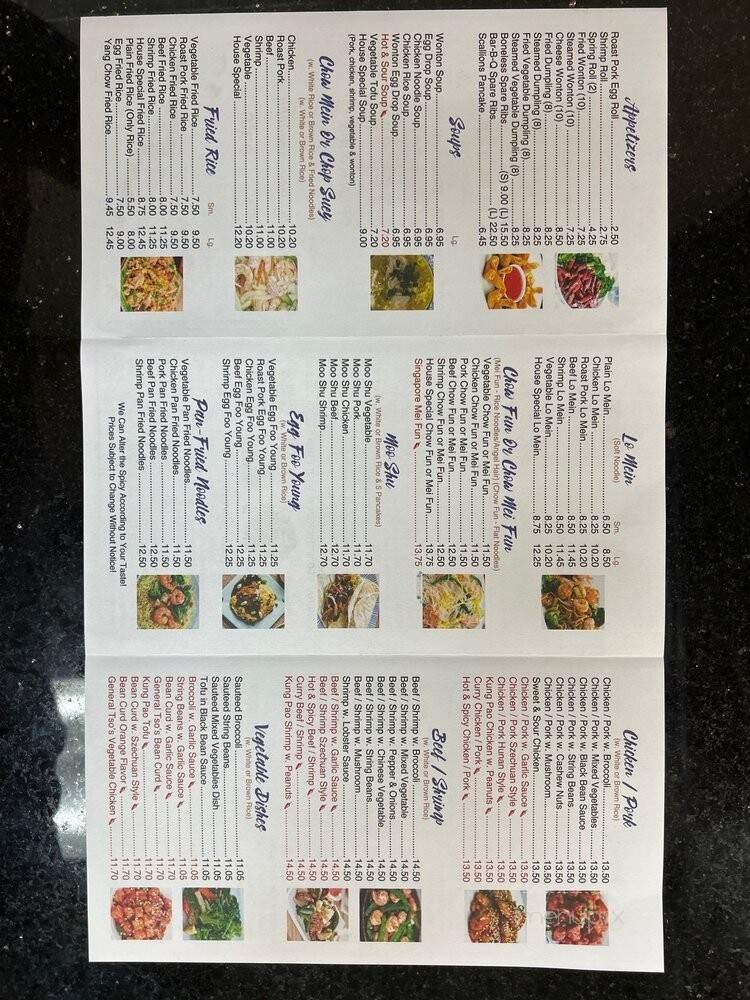 Appetizers
Roast Pork Egg Roll 2.50
Shrimp Roll 2.75
Spring Roll (2) 4.25
Fried Wonton (10) 7.25
Steamed Wonton (10) 7.25
Cheese Wonton (10) 8.50
Fried Dumpling (8) 8.25
Steamed Dumpling (8) 8.25
Fried Vegetable Dumpling (8) 8.25
Steamed Vegetable Dumpling (8) 8.25
Boneless Spare Ribs (S) 9.00 (L) 15.50
Bar-B-Q Spare Ribs (L) 22.50
Scallions Pancake 6.45
Soups
Lg.
Wonton Soup 6.95
Egg Drop Soup 6.95
Chicken Noodle Soup 6.95
Chicken Rice Soup 6.95
Wonton Egg Drop Soup 6.95
Hot & Sour Soup 7.20
Vegetable Tofu Soup 7.20
House Special Soup 9.00
(Pork, chicken, shrimp, vegetable & wonton)
Chow Mein Or Chop Suey
(w. White Rice or Brown Rice & Fried Noodles)
(w. White or Brown Rice)
Chicken 10.20
Roast Pork 10.20
Beef 11.00
Shrimp 11.00
Vegetable 10.20
House Special 12.20
Fried Rice
Sm. Lg.
Vegetable Fried Rice 7.50 9.50
Roast Pork Fried Rice 7.50 9.50
Chicken Fried Rice 7.50 9.50
Beef Fried Rice 8.00 11.25
Shrimp Fried Rice 8.00 11.25
House Special Fried Rice 8.75 12.45
Plain Fried Rice (Only Rice) 5.50 8.00
Egg Fried Rice 7.50 9.00
Yang Chow Fried Rice 9.45 12.45
Lo Mein
(Soft Noodle)
Sm. Lg.
Plain Lo Mein 6.50 8.50
Chicken Lo Mein 8.25 10.20
Roast Pork Lo Mein 8.25 10.20
Beef Lo Mein 8.50 11.45
Shrimp Lo Mein 8.50 11.45
Vegetable Lo Mein 8.25 10.20
House Special Lo Mein 8.75 12.25
Chow Fun Or Chow Mei Fun
(Mei Fun - Rice Noodles/Angel Hair) (Chow Fun - Flat Noodles)
Vegetable Chow Fun or Mei Fun 11.50
Chicken Chow Fun or Mei Fun 11.50
Pork Chow Fun or Mei Fun 11.50
Beef Chow Fun or Mei Fun 12.50
Shrimp Chow Fun or Mei Fun 12.50
House Special Chow Fun or Mei Fun 13.75
Singapore Mei Fun 13.75
Moo Shu
(w. White or Brown Rice & 5 Pancakes)
Moo Shu Vegetable 11.70
Moo Shu Pork 11.70
Moo Shu Chicken 11.70
Moo Shu Beef 12.70
Moo Shu Shrimp 12.70
Egg Foo Young
(w. White or Brown Rice)
Vegetable Egg Foo Young 11.25
Roast Pork Egg Foo Young 11.25
Chicken Egg Foo Young 11.25
Beef Egg Foo Young 12.25
Shrimp Egg Foo Young 12.25
Pan-Fried Noodles
Vegetable Pan Fried Noodles 11.50
Chicken Pan Fried Noodles 11.50
Pork Pan Fried Noodles 11.50
Beef Pan Fried Noodles 12.50
Shrimp Pan Fried Noodles 12.50
We Can Alter the Spicy According to Your Taste!
Prices Subject to Change Without Notice!
Chicken / Pork
(w. White or Brown Rice)
Chicken / Pork w. Broccoli 13.50
Chicken / Pork w. Mixed Vegetables 13.50
Chicken / Pork w. Black Bean Sauce 13.50
Chicken / Pork w. String Beans 13.50
Chicken / Pork w. Cashew Nuts 13.50
Chicken / Pork w. Mushroom 13.50
Sweet & Sour Chicken 13.50
Chicken / Pork w. Garlic Sauce 13.50
Chicken / Pork Szechuan Style 13.50
Chicken / Pork Hunan Style 13.50
Kung Pao Chicken w. Peanuts 13.50
Curry Chicken / Pork 13.50
Hot & Spicy Chicken / Pork 13.50
Beef / Shrimp
(w. White or Brown Rice)
Beef / Shrimp w. Broccoli 14.50
Beef / Shrimp w. Mixed Vegetable 14.50
Beef / Shrimp w. Pepper & Onions 14.50
Beef / Shrimp w. Chinese Vegetable 14.50
Beef / Shrimp w. String Beans 14.50
Beef / Shrimp w. Mushroom 14.50
Shrimp w. Lobster Sauce 14.50
Beef / Shrimp w. Garlic Sauce 14.50
Beef / Shrimp Szechuan Style 14.50
Hot & Spicy Beef / Shrimp 14.50
Curry Beef / Shrimp 14.50
Kung Pao Shrimp w. Peanuts 14.50
Vegetable Dishes
(w. White or Brown Rice)
Sauteed Broccoli 11.05
Sauteed String Beans 11.05
Sauteed Mixed Vegetables Dish 11.05
Tofu in Black Bean Sauce 11.05
Broccoli w. Garlic Sauce 11.05
String Beans w. Garlic Sauce 11.05
Bean Curd w. Garlic Sauce 11.70
General Tso's Bean Curd 11.70
Kung Pao Tofu 11.70
Bean Curd w. Szechuan Style 11.70
Bean Curd Orange Flavor 11.70
General Tso's Vegetable Chicken 11.70